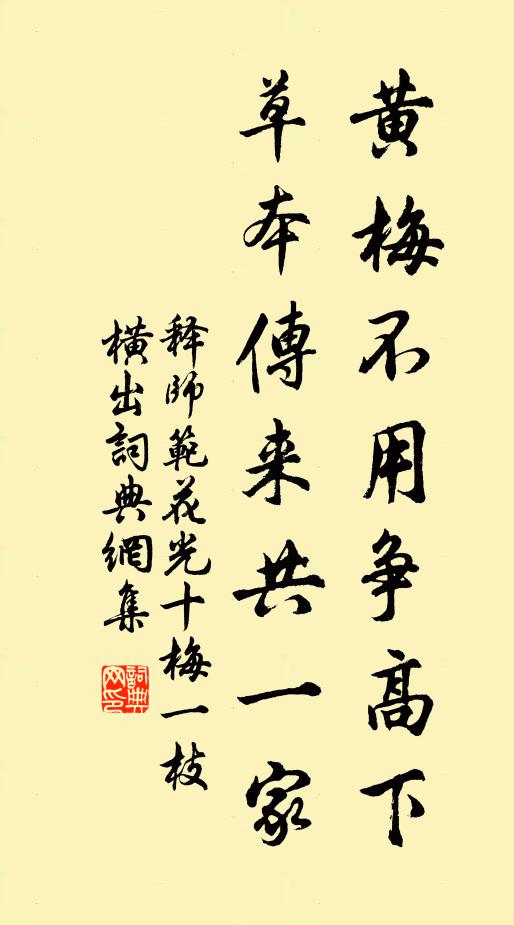 黄梅不用争高下
草本傳来共一家
释師範花光十梅一枝
橫出詞典網集
詞典
网印